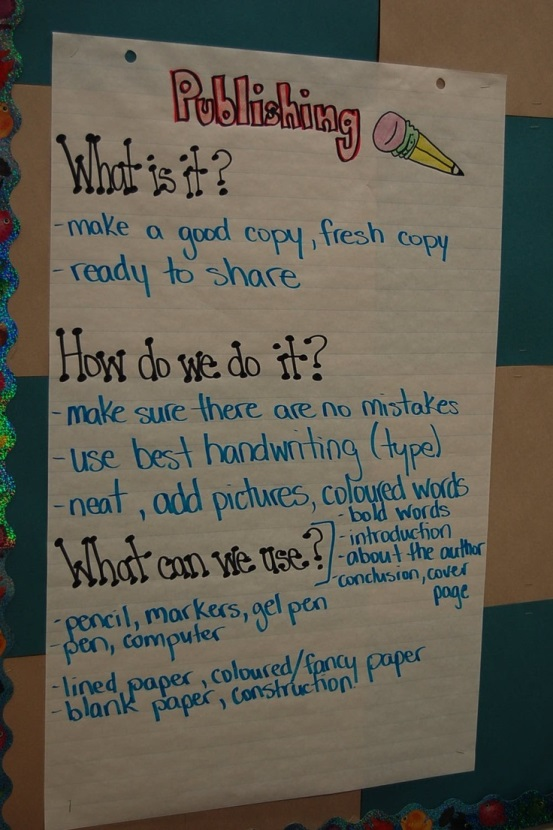 Publishing
What is it?
-make a good copy, fresh copy
-ready to share
How do we do it?
-make sure there are no mistakes
-use best handwriting (type)
-neat, add pictures, coloured words
- bold words
-introduction
-about the author
-conclusion, cover
page
What can we use?
-pencil, markers, gel pen
-pen, computer
-lined paper, coloured/fancy paper
-blank paper, construction